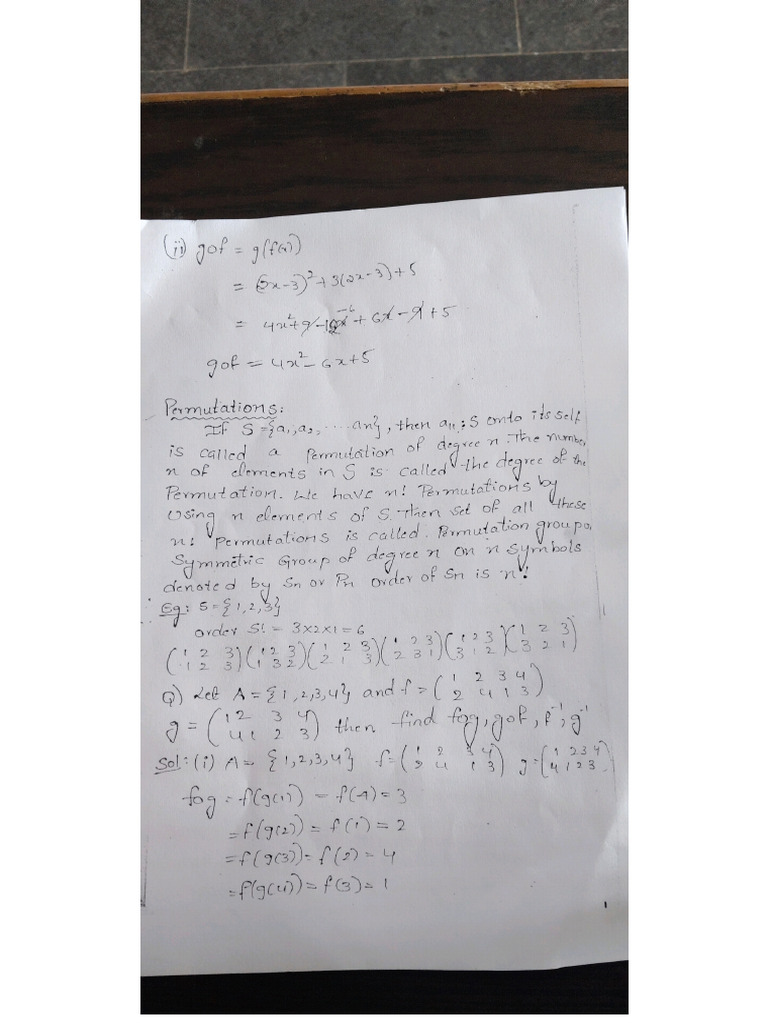 (ii) gof = g(f(x))
= (2x-3)² + 3(2x-3)+5
= 4x²+9-12x + 6x - 9 + 5
gof = 4x² - 6x + 5
Permutations:
If S = {a₁, a₂, ... an}, then a₁₁; S onto its self
is called a permutation of degree n. The number
n of elements in S is called the degree of the
Permutation. We have n! Permutations by
using n elements of S. Then set of all these
n! Permutations is called. Permutation group or
Symmetric Group of degree n on n symbols
denoted by Sn or Pn order of Sn is n!
Eg: S = {1,2,3}
order S! = 3x2x1 = 6
(1 2 3) (1 2 3) (1 2 3) (1 2 3) (1 2 3) (1 2 3)
(1 2 3) (1 3 2) (2 1 3) (2 3 1) (3 1 2) (3 2 1)
Q) Let A = {1,2,3,4} and f = (1 2 3 4)
(2 4 1 3)
g = (1 2 3 4) then find fog, gof, f⁻¹, g⁻¹
(4 1 2 3)
Sol: (i) A = {1,2,3,4} f = (1 2 3 4) g = (1 2 3 4)
(2 4 1 3) (4 1 2 3)
fog = f(g(1)) = f(4) = 3
= f(g(2)) = f(1) = 2
= f(g(3)) = f(2) = 4
= f(g(4)) = f(3) = 1